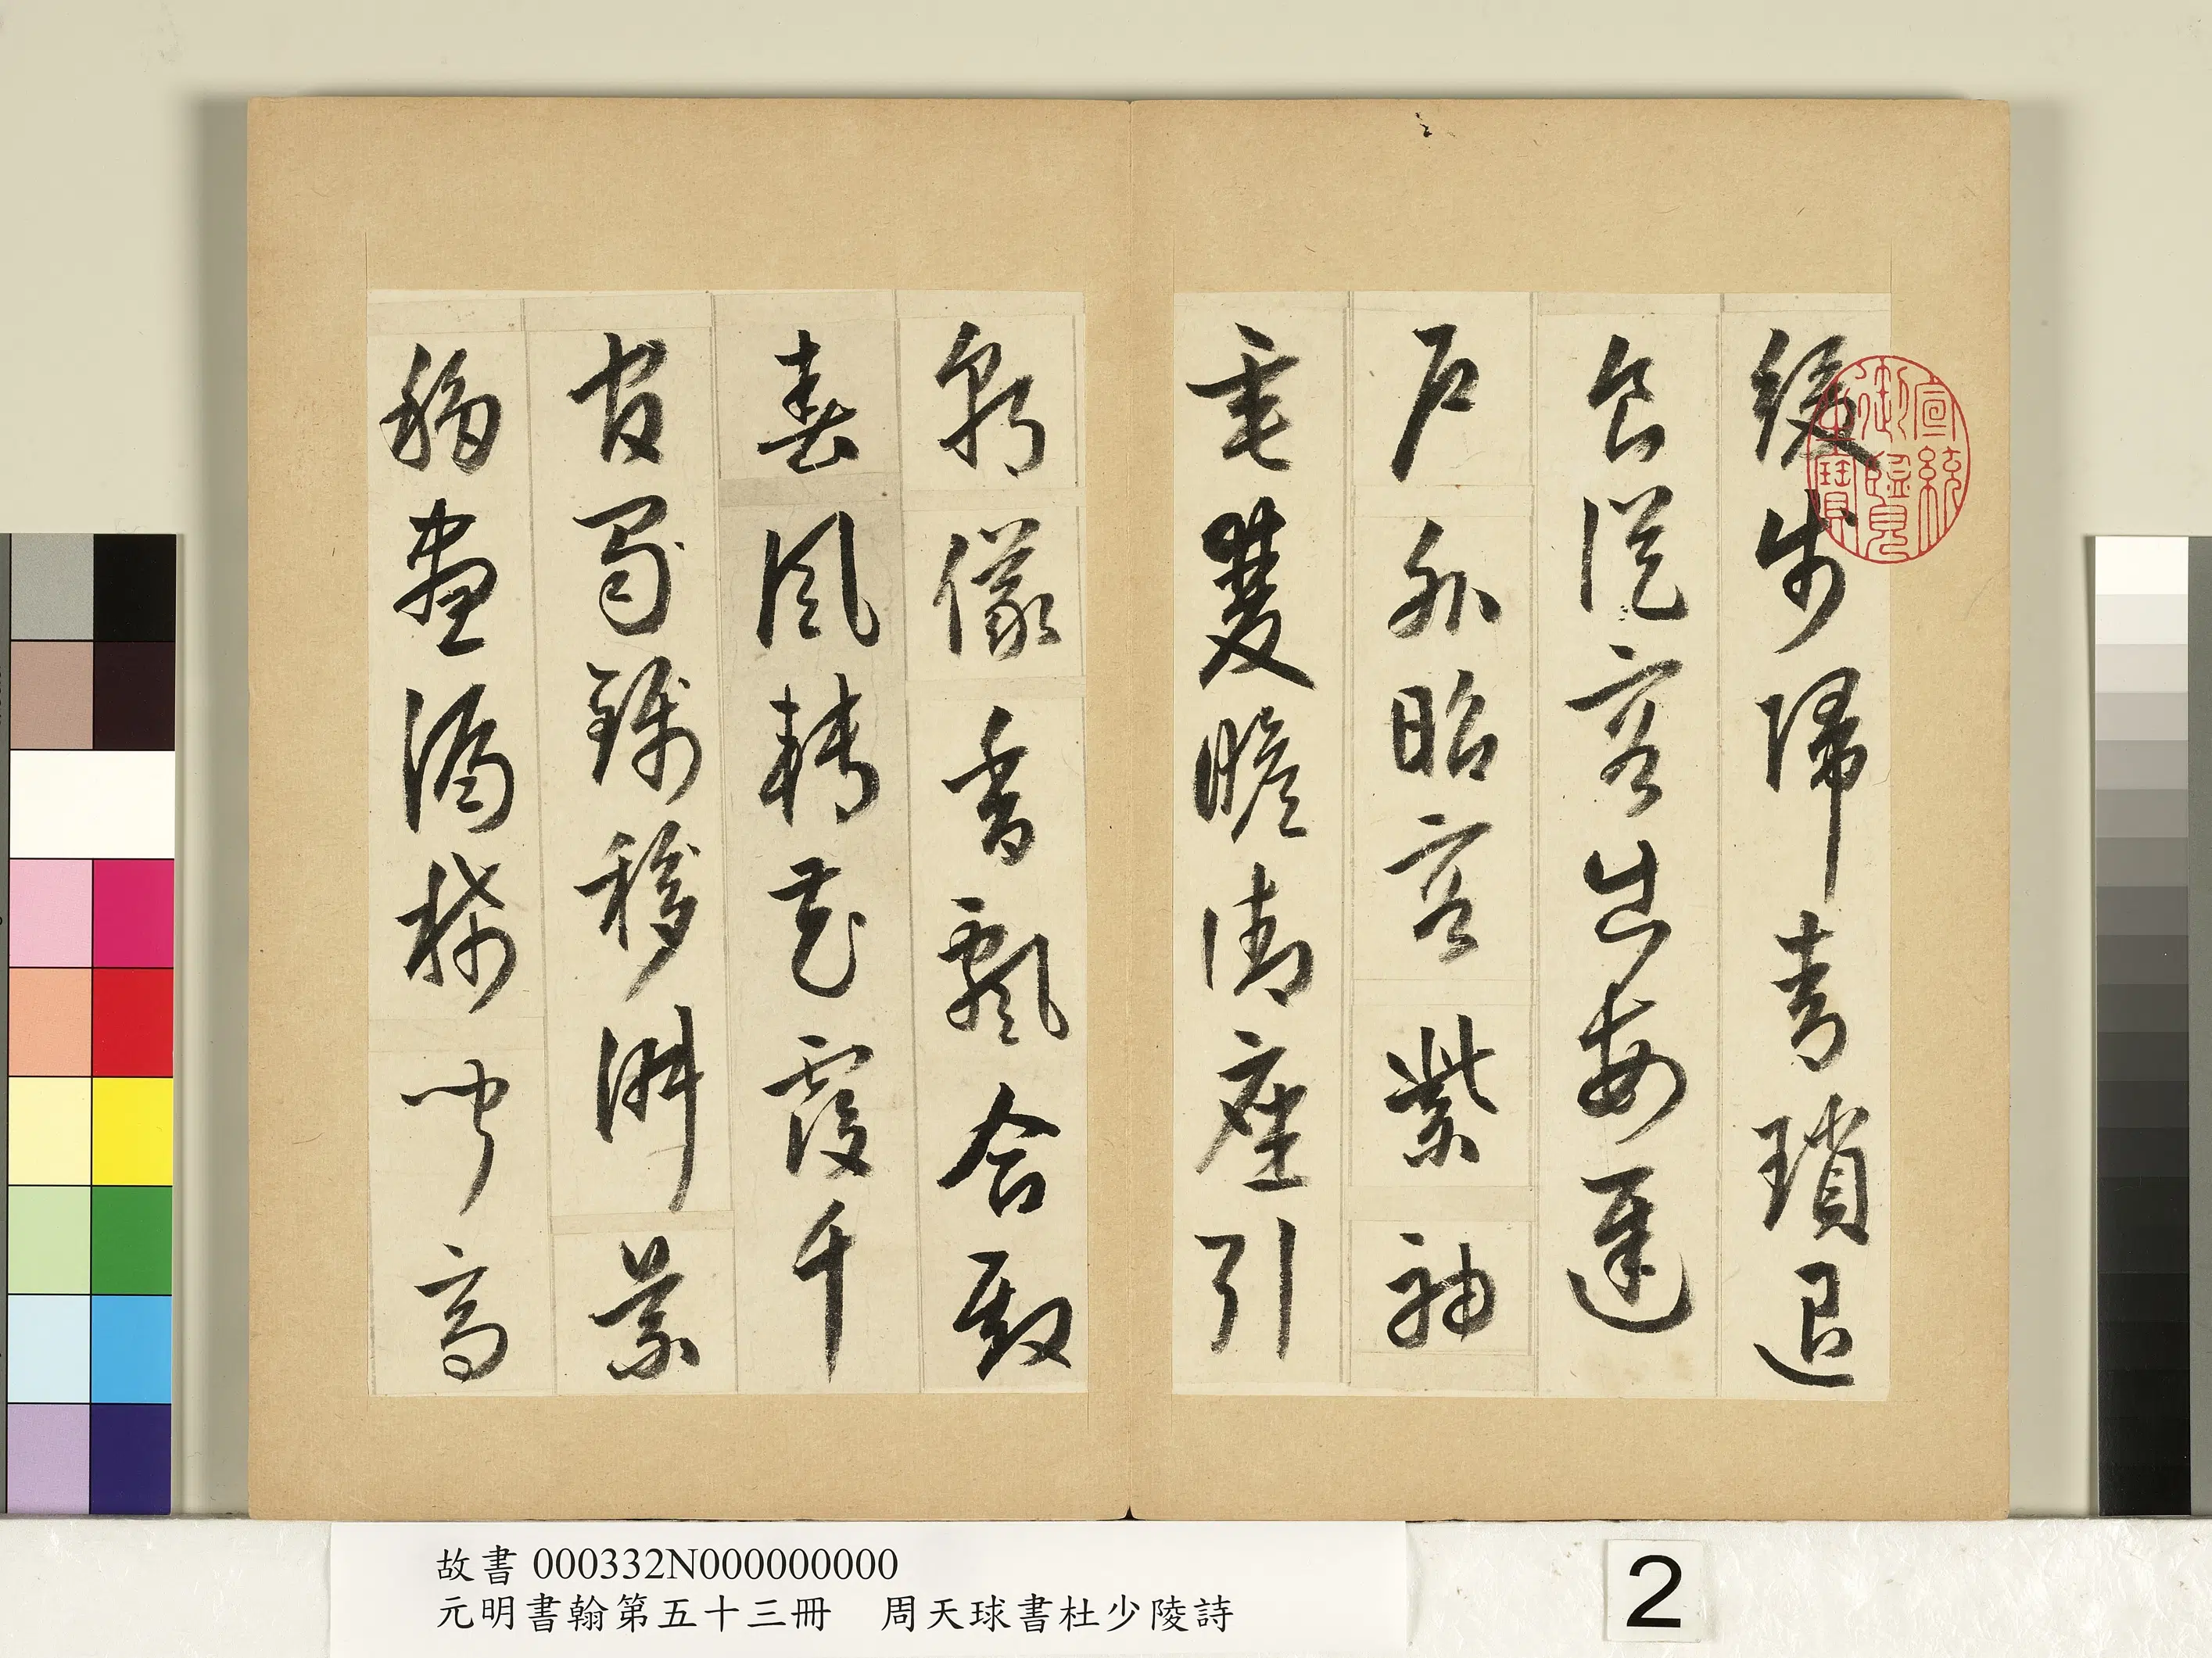 緩步歸青瑣退
食從容出每遲
戶外昭容紫袖
垂雙瞻御座引
朝儀香飄合殿
春風轉花覆千
官移淑景
移晝漏稀聞高
宣統御覽之寶
故書 000332N000000000
元明書翰第五十三冊 周天球書杜少陵詩
2